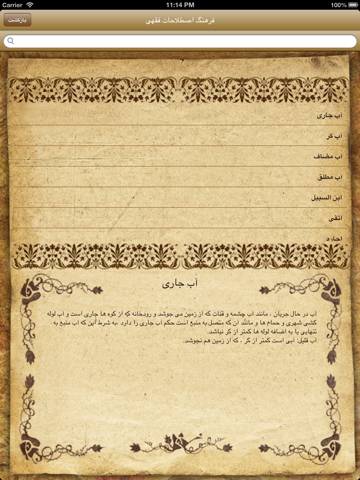 Carrier 11:14 PM 100%
فرهنگ اصطلاحات فقهی
بازگشت
آب جاری
آب کر
آب مضاف
آب مطلق
ابن السبیل
اتقی
اجاره
آب جاری
آب در حال جریان ، مانند آب چشمه و قنات که از زمین می جوشد و رودخانه که از کوه ها جاری است و آب لوله
کشی شهری و حمام ها و مانند آن که متصل به منبع است حکم آب جاری را دارد ،به شرط آین که آب منبع به
تنهایی یا به اضافه لوله ها کمتر از کر نباشد.
آب قلیل: آبی است کمتر از کر ، که از زمین هم نجوشد.